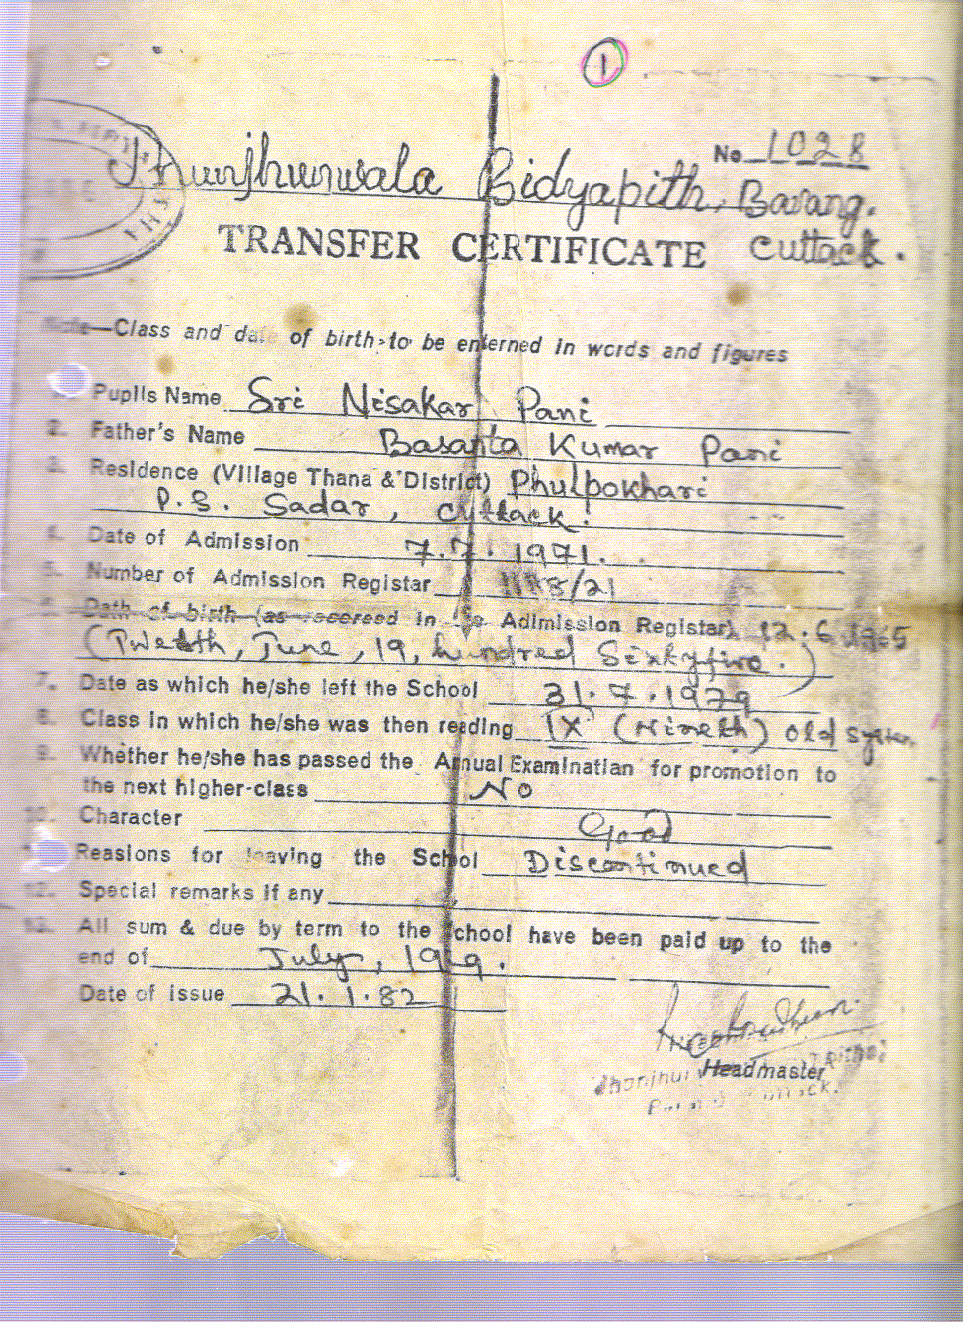 1
No 1028
Jhunjhunwala Bidyapith, Barang.
TRANSFER CERTIFICATE Cuttack.
Note—Class and date of birth to be enterned in words and figures
Pupils Name Sri Nisakar Pani
2. Father's Name Basanta Kumar Pani
3. Residence (Village Thana & District) Phulpokhari
P.S. Sadar, Cuttack.
4. Date of Admission 7.7.1971.
5. Number of Admission Registar /21
6. Dath of birth (as recorced in the Adimission Registar) 12.6.1965
(Twelth, June, 19, hundred Sixtyfive.)
7. Date as which he/she left the School 31.7.1979
8. Class in which he/she was then reading IX (Nineth) old System
9. Whether he/she has passed the Annual Examinatian for promotion to
the next higher-class No
10. Character Good
Reasions for leaving the School Discontinued
12. Special remarks if any
13. All sum & due by term to the School have been paid up to the
end of July, 1979.
Date of issue 21.1.82
Headmaster